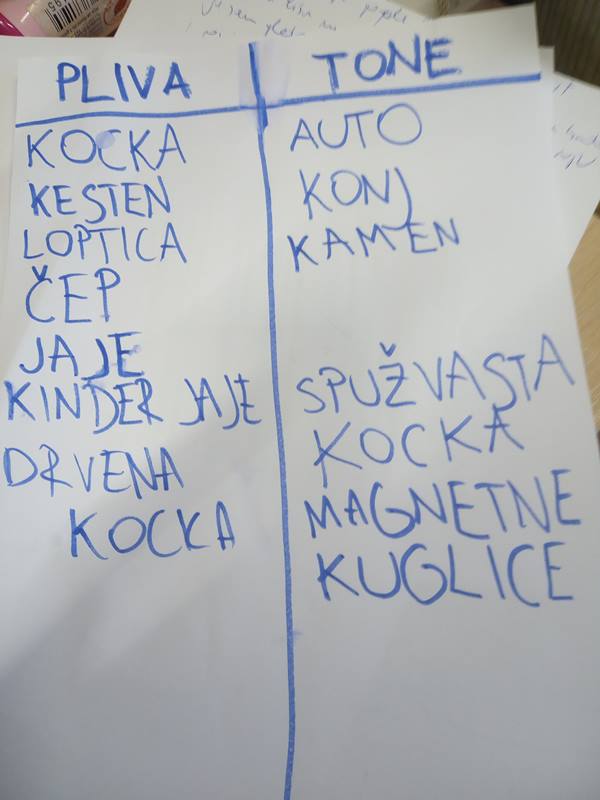 PLIVA
KOCKA
KESTEN
LOPTICA
ČEP
JAJE
KINDER JAJE
DRVENA
KOCKA
TONE
AUTO
KONJ
KAMEN
SPUŽVASTA
KOCKA
MAGNETNE
KUGLICE